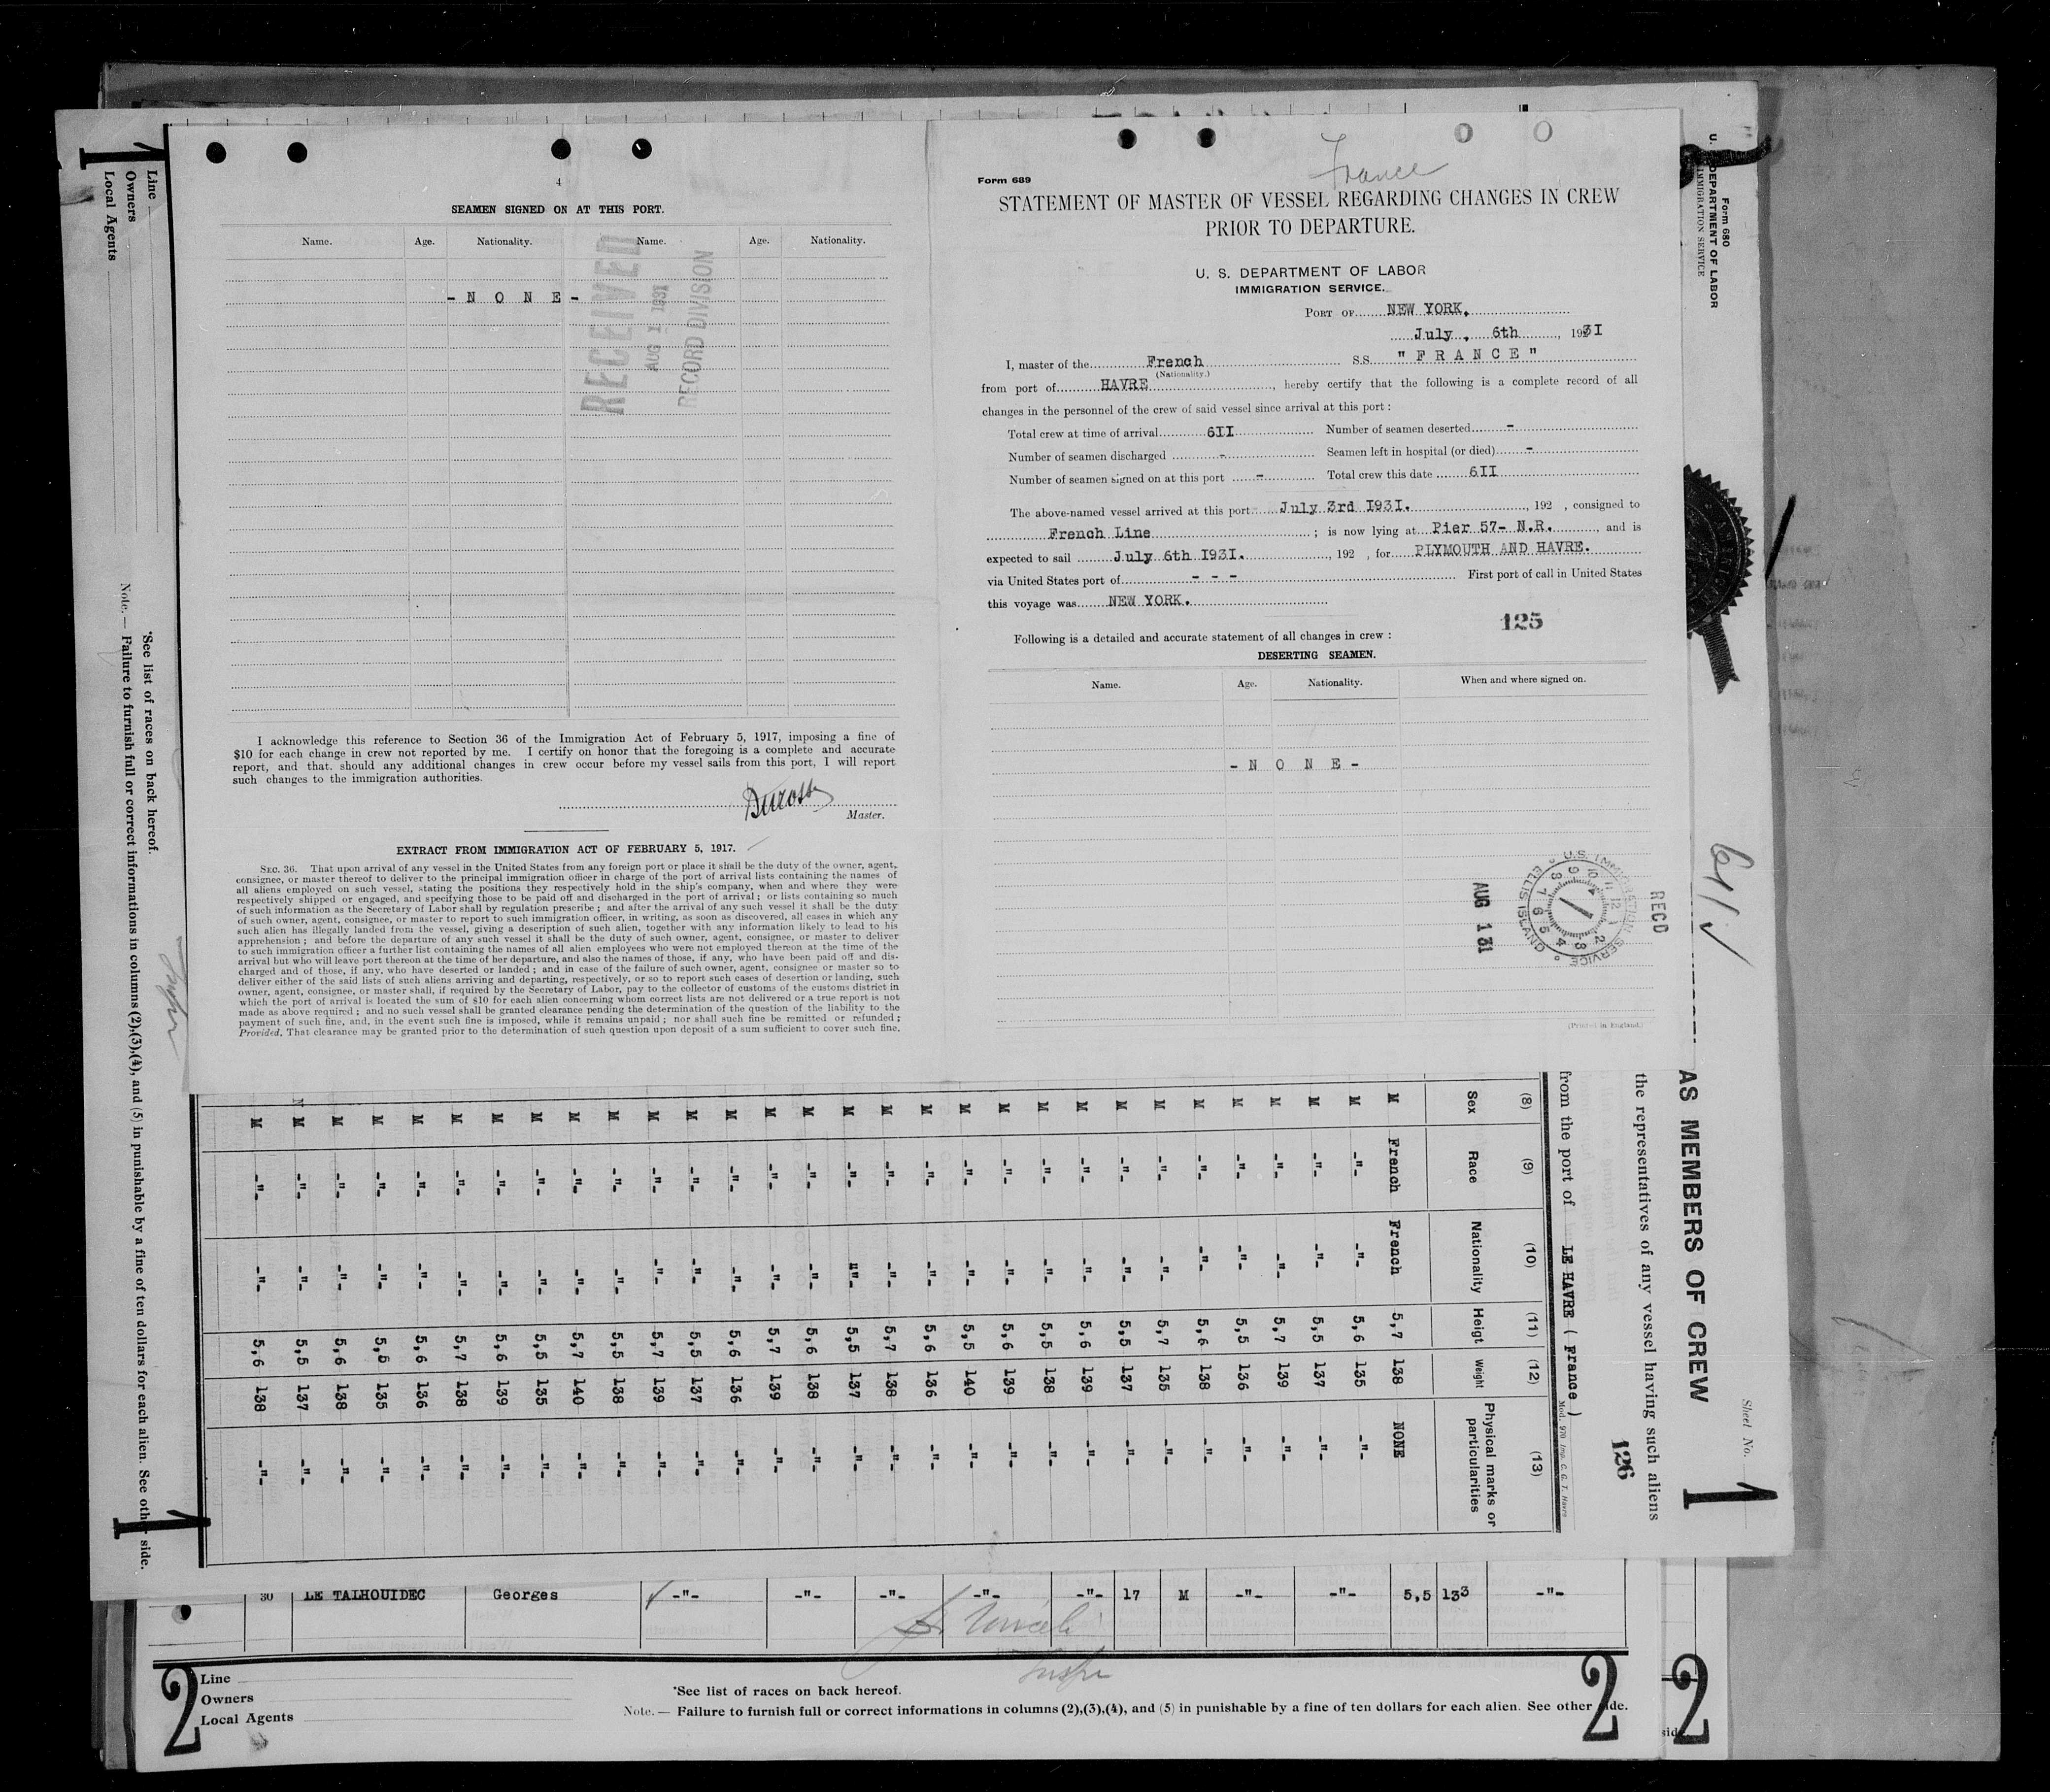 4
SEAMEN SIGNED ON AT THIS PORT.
Name. Age. Nationality. Name. Age. Nationality.
- N O N E -
RECEIVED
AUG 1 1931
RECORD DIVISION
I acknowledge this reference to Section 36 of the Immigration Act of February 5, 1917, imposing a fine of
$10 for each change in crew not reported by me. I certify on honor that the foregoing is a complete and accurate
report, and that should any additional changes in crew occur before my vessel sails from this port, I will report
such changes to the immigration authorities.
Master.
EXTRACT FROM IMMIGRATION ACT OF FEBRUARY 5, 1917.
SEC. 36. That upon arrival of any vessel in the United States from any foreign port or place it shall be the duty of the owner, agent,
consignee, or master thereof to deliver to the principal immigration officer in charge of the port of arrival lists containing the names of
all aliens employed on such vessel, stating the positions they respectively hold in the ship's company, when and where they were
respectively shipped or engaged, and specifying those to be paid off and discharged in the port of arrival; or lists containing so much
of such information as the Secretary of Labor shall by regulation prescribe; and after the arrival of any such vessel it shall be the duty
of such owner, agent, consignee, or master to report to such immigration officer, in writing, as soon as discovered, all cases in which any
such alien has illegally landed from the vessel, giving a description of such alien, together with any information likely to lead to his
apprehension; and before the departure of any such vessel it shall be the duty of such owner, agent, consignee, or master to deliver
to such immigration officer a further list containing the names of all alien employees who were not employed thereon at the time of the
arrival but who will leave port thereon at the time of her departure, and also the names of those, if any, who have been paid off and dis-
charged and of those, if any, who have deserted or landed; and in case of the failure of such owner, agent, consignee or master so to
deliver either of the said lists of such aliens arriving and departing, respectively, or so to report such cases of desertion or landing, such
owner, agent, consignee, or master shall, if required by the Secretary of Labor, pay to the collector of customs of the customs district in
which the port of arrival is located the sum of $10 for each alien concerning whom correct lists are not delivered or a true report is not
made as above required; and no such vessel shall be granted clearance pending the determination of the question of the liability to the
payment of such fine, and, in the event such fine is imposed, while it remains unpaid; nor shall such fine be remitted or refunded;
Provided, That clearance may be granted prior to the determination of such question upon deposit of a sum sufficient to cover such fine.
France
Form 689
STATEMENT OF MASTER OF VESSEL REGARDING CHANGES IN CREW
PRIOR TO DEPARTURE.
U. S. DEPARTMENT OF LABOR
IMMIGRATION SERVICE.
PORT OF NEW YORK.
July , 6th , 1931
I, master of the French S.S. " F R A N C E "
(Nationality.)
from port of HAVRE , hereby certify that the following is a complete record of all
changes in the personnel of the crew of said vessel since arrival at this port:
Total crew at time of arrival 6II Number of seamen deserted -
Number of seamen discharged - Seamen left in hospital (or died) -
Number of seamen signed on at this port - Total crew this date 6II
The above-named vessel arrived at this port July 3rd I93I. , 192 , consigned to
French Line ; is now lying at Pier 57- N.R. , and is
expected to sail July 6th I93I. , 192 , for PLYMOUTH AND HAVRE.
via United States port of - - - First port of call in United States
this voyage was NEW YORK.
125
Following is a detailed and accurate statement of all changes in crew:
DESERTING SEAMEN.
Name. Age. Nationality. When and where signed on.
- N O N E -
RECD
U.S. IMMIGRATION SERVICE
ELLIS ISLAND
AUG 1 31
(Printed in England)
Form 680
U. DEPARTMENT OF LABOR
IMMIGRATION SERVICE
611
AS MEMBERS OF CREW
Sheet No. 1
the representatives of any vessel having such aliens
126
from the port of LE HAVRE ( France )
Mod. 970 Imp. C. G. T. Havre
(8) (9) (10) (11) (12) (13)
Sex Race Nationality Heigt Weight Physical marks or particularities
M French French 5,7 138 NONE
M -"- -"- 5,6 135 -"-
M -"- -"- 5,5 137 -"-
M -"- -"- 5,7 139 -"-
M -"- -"- 5,5 136 -"-
M -"- -"- 5,6 138 -"-
M -"- -"- 5,7 135 -"-
M -"- -"- 5,5 137 -"-
M -"- -"- 5,6 139 -"-
M -"- -"- 5,5 138 -"-
M -"- -"- 5,6 139 -"-
M -"- -"- 5,5 140 -"-
M -"- -"- 5,6 136 -"-
M -"- -"- 5,7 138 -"-
M -"- -"- 5,5 137 -"-
M -"- -"- 5,6 138 -"-
M -"- -"- 5,7 139 -"-
M -"- -"- 5,6 136 -"-
M -"- -"- 5,5 137 -"-
M -"- -"- 5,7 139 -"-
M -"- -"- 5,5 138 -"-
M -"- -"- 5,7 140 -"-
M -"- -"- 5,5 135 -"-
M -"- -"- 5,6 139 -"-
M -"- -"- 5,7 138 -"-
M -"- -"- 5,6 136 -"-
M -"- -"- 5,5 135 -"-
M -"- -"- 5,6 138 -"-
M -"- -"- 5,5 137 -"-
M -"- -"- 5,6 138 -"-
Line
Owners
Local Agents
*See list of races on back hereof.
Note. — Failure to furnish full or correct informations in columns (2),(3),(4), and (5) in punishable by a fine of ten dollars for each alien. See other side.
1
1
30 LE TALHOUIDEC Georges -"- -"- -"- -"- -"- 17 M -"- -"- 5,5 133 -"-
Line
Owners
Local Agents
*See list of races on back hereof.
Note. — Failure to furnish full or correct informations in columns (2),(3),(4), and (5) in punishable by a fine of ten dollars for each alien. See other side.
2
2
2